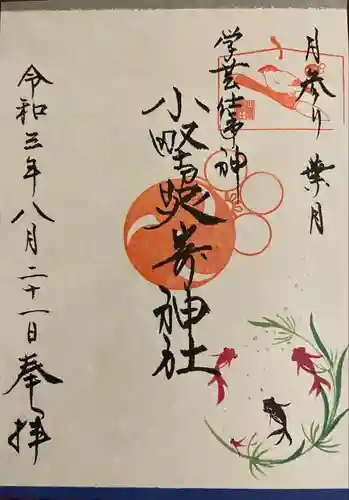 月参り 葉月
学芸結神
小野照崎神社
令和三年八月二十一日 奉拝